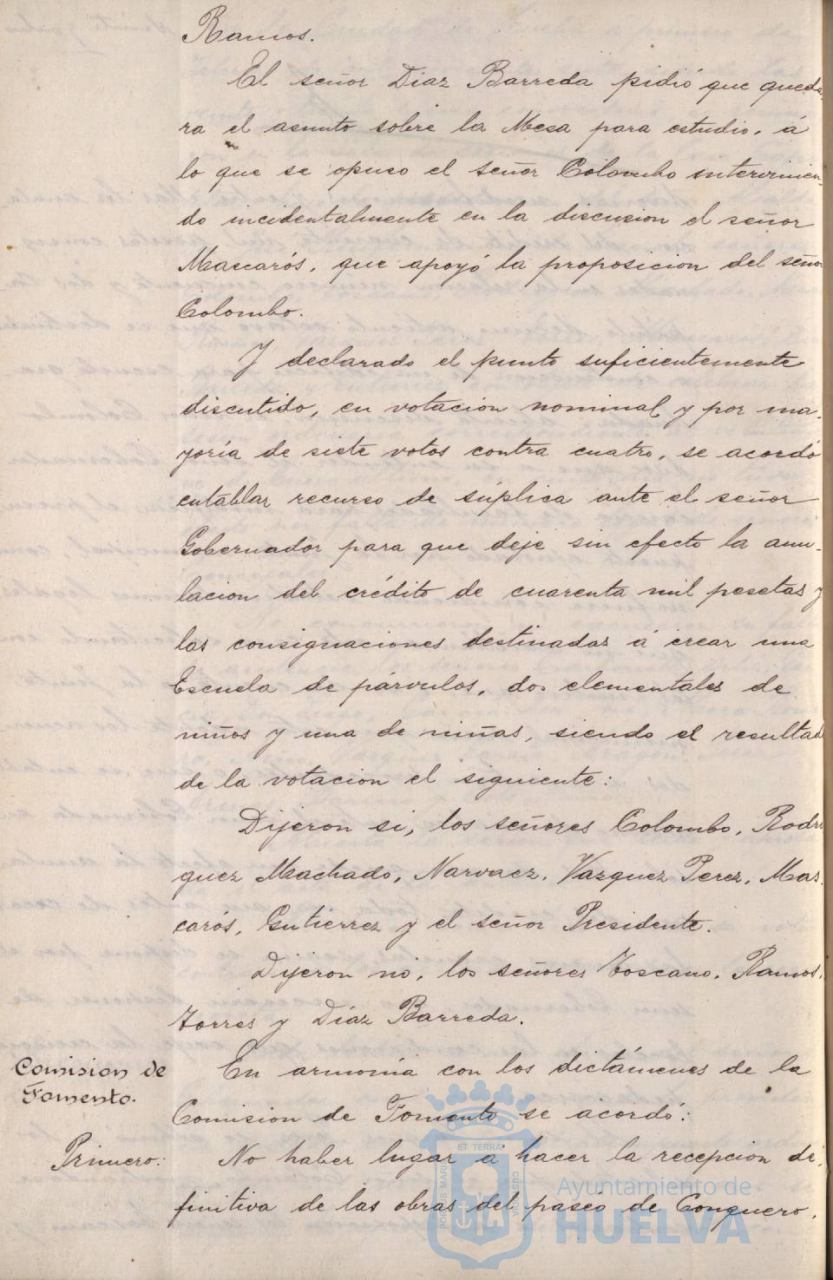 Ramos.
El señor Diaz Barreda pidió que queda-
ra el asunto sobre la Mesa para estudio, á
lo que se opuso el señor Colombo intervinien-
do incidentalmente en la discusion el señor
Mascarós, que apoyó la proposicion del señor
Colombo.
Y declarado el punto suficientemente
discutido, en votacion nominal y por ma-
yoría de siete votos contra cuatro, se acordó
entablar recurso de súplica ante el señor
Gobernador para que deje sin efecto la anu-
lacion del crédito de cuarenta mil pesetas y
las consignaciones destinadas á crear una
Escuela de párvulos, dos elementales de
niños y una de niñas, siendo el resultado
de la votacion el siguiente:
Dijeron si, los señores Colombo, Rodri
guez Machado, Narvaez, Vazquez Perez, Mas-
carós, Gutierrez y el señor Presidente.
Dijeron no, los señores Toscano, Ramos,
Torres y Díaz Barreda.
Comision de
Fomento.
En armonía con los dictámenes de la
Comision de Fomento se acordó:
Primero:
No haber lugar á hacer la recepcion de-
finitiva de las obras del paseo de Conquero.
Ayuntamiento de
HUELVA